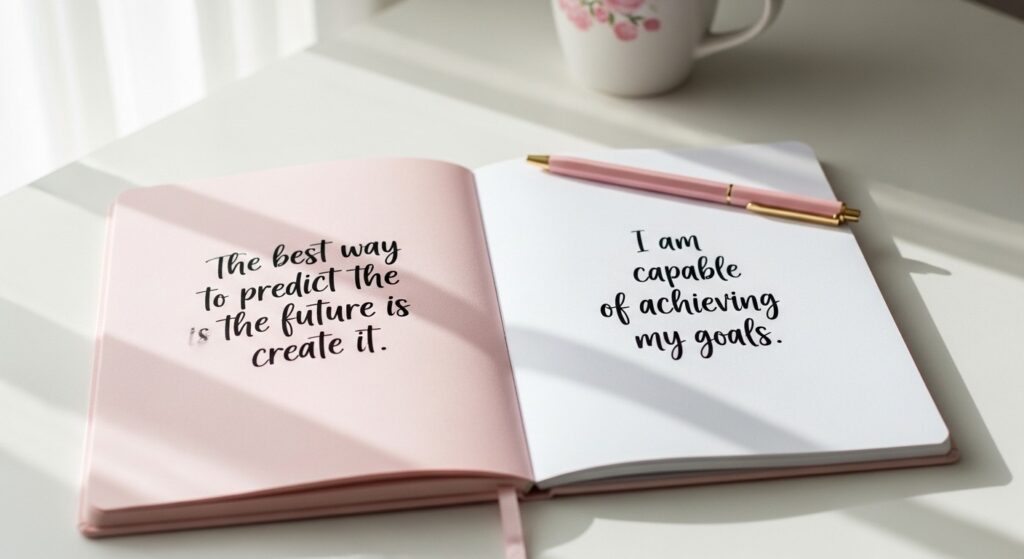 The best way
to predict the
is the future is
create it.
I am
capable
of achieving
my goals.